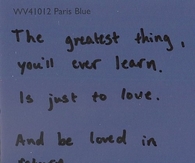 WV41012 Paris Blue
The greatest thing,
you'll ever learn.
Is just to love.
And be loved in